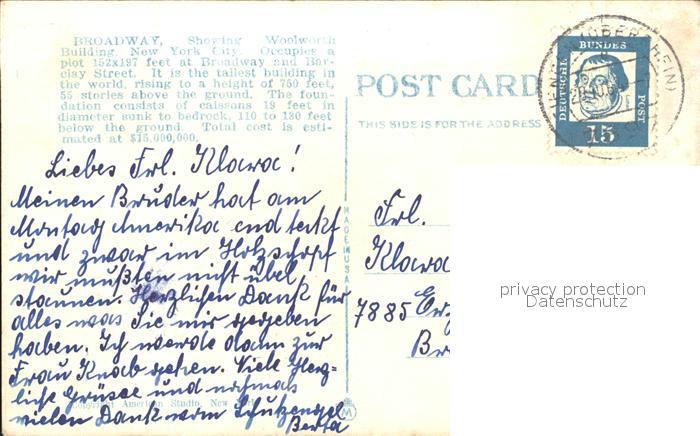 BROADWAY, Showing Woolworth
Building, New York City. Occupies a
plot 152x197 feet at Broadway and Bar-
clay Street. It is the tallest building in
the world, rising to a height of 750 feet,
55 stories above the ground. The foun-
dation consists of caissans 19 feet in
diameter sunk to bedrock, 110 to 130 feet
below the ground. Total cost is esti-
mated at $15,000,000.
POST CARD
THIS SIDE IS FOR THE ADDRESS
DEUTSCHE BUNDES POST
15
Liebes Frl. Klara!
Meinen Bruder hat am
Montag Amerika endteckt
und zwar im Holzschopf
wir mußten nicht übel
staunen. Herzlichen Dank für
alles was Sie mir gegeben
haben. Ich werde dann zur
Frau Knab gehen. Viele Herz-
liche Grüsse und nochmals
vielen Dank vom Schutzengel
Berta
Copyright American Studio, New York
MADE IN USA
Frl.
Klara
7885
privacy protection
Datenschutz